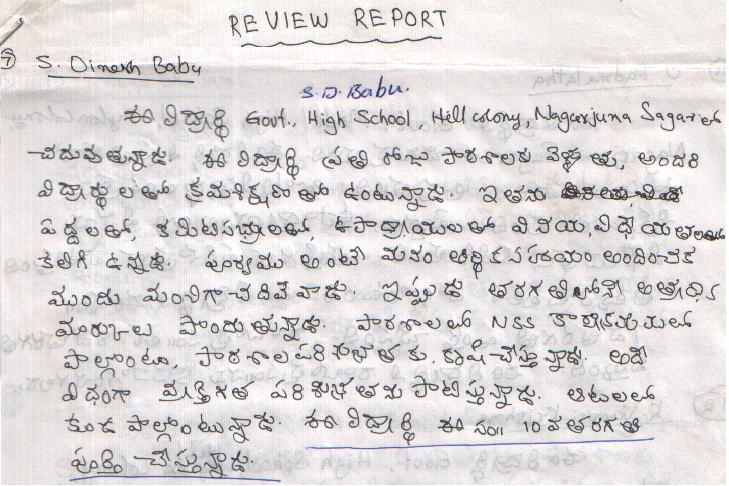 REVIEW REPORT
7 S. Dinesh Babu
S.D. Babu.
ఈ విద్యార్థి Govt., High School, Hill colony, Nagarjuna Sagar లో
చదువుతున్నాడు. ఈ విద్యార్థి ప్రతి రోజు పాఠశాలకు వెళ్తూ, అందరి
విద్యార్థులతో క్రమశిక్షణతో ఉంటున్నాడు. ఇతను
పెద్దలతో, కమిటిసభ్యులతో, ఉపాధ్యాయులతో వినయ, విధేయతలను
కలిగి ఉన్నాడు. పూర్వము అంటే మనం ఆర్థిక సహాయం అందించక
ముందు మంచిగా చదివేవాడు. ఇప్పుడు తరగతిలోని అత్యధిక
మార్కుల పొందుతున్నాడు. పాఠశాలలో NSS కార్యక్రమములో
పాల్గొంటూ, పాఠశాల పరిశుభ్రతకు కృషి చేస్తున్నాడు. అదే
విధంగా వ్యక్తిగత పరిశుభ్రతను పాటిస్తున్నాడు. ఆటలలో
కూడ పాల్గొంటున్నాడు. ఈ విద్యార్థి ఈ సం॥ 10 వ తరగతి
పూర్తి చేస్తున్నాడు.